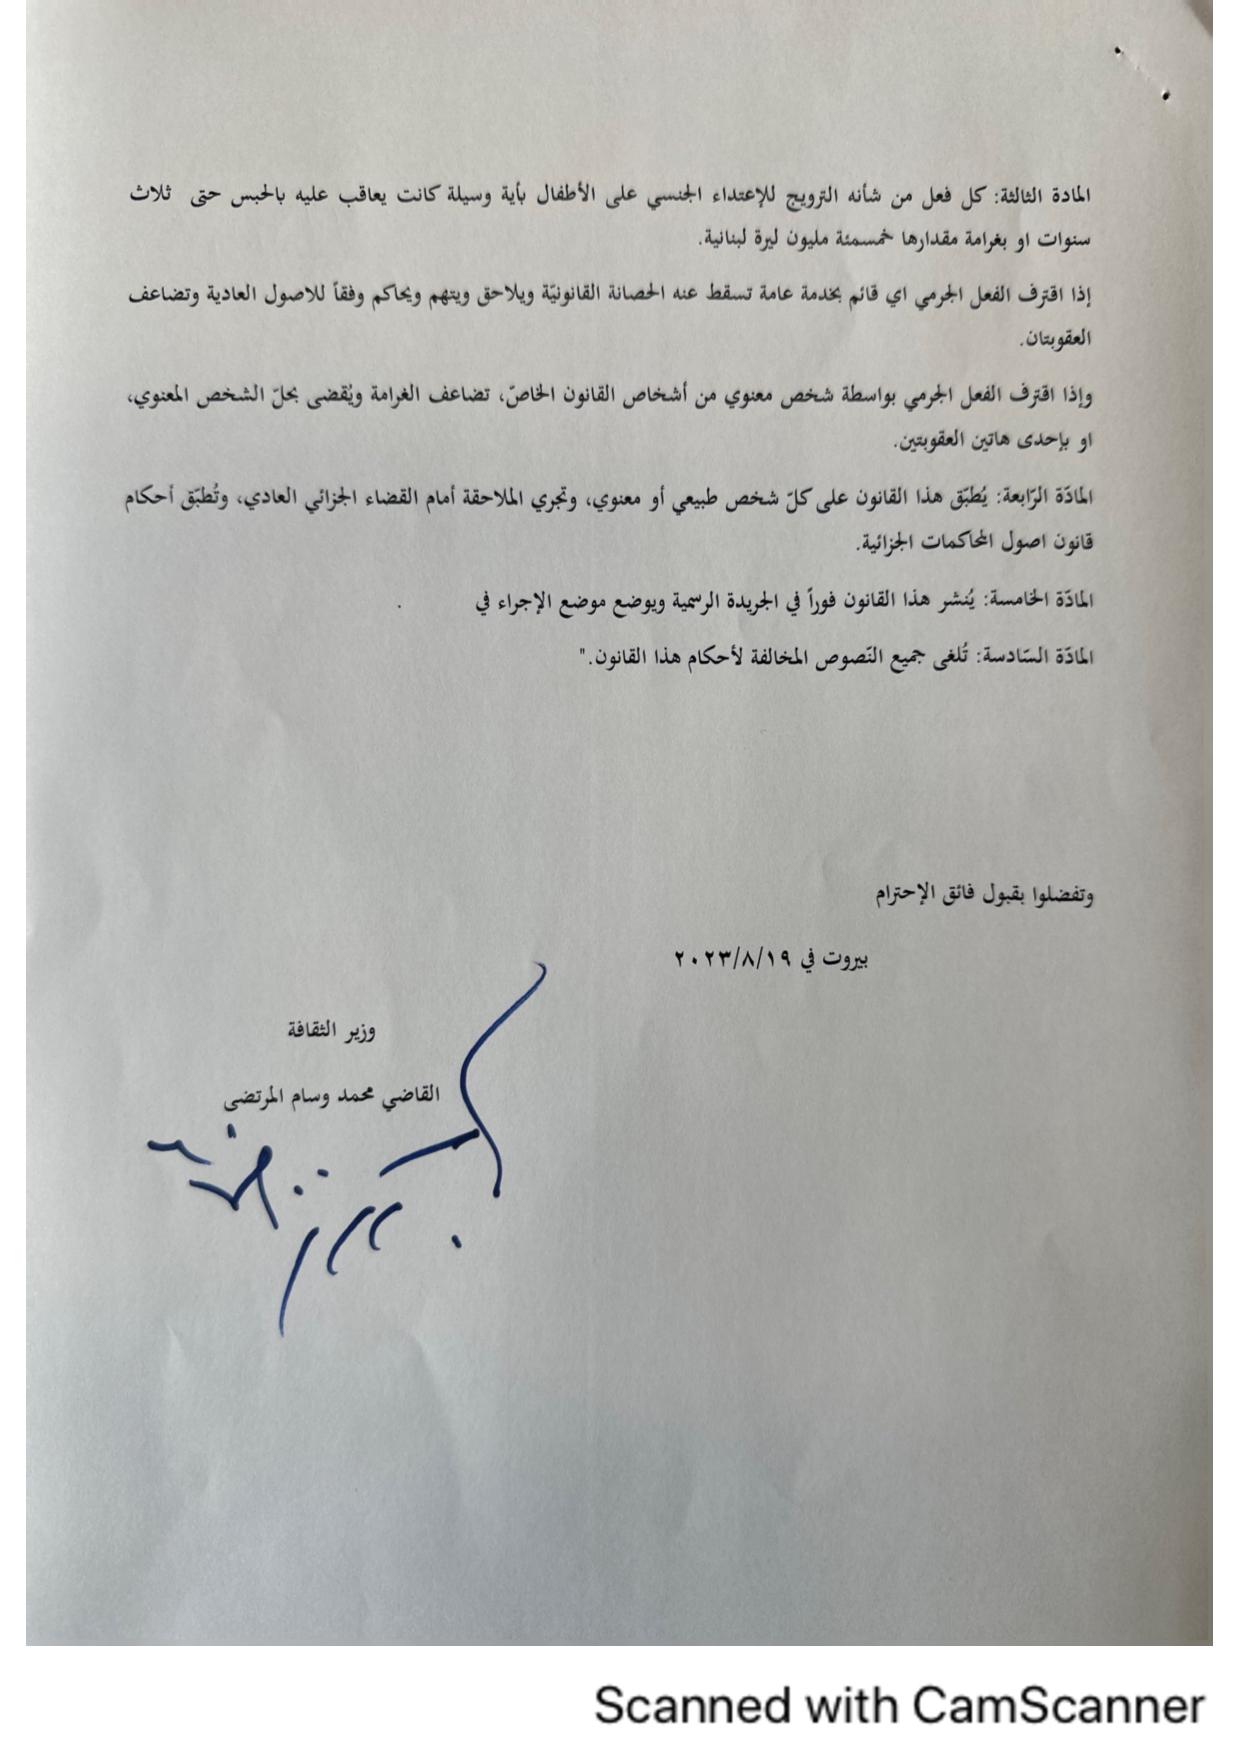 المادة الثالثة: كل فعل من شأنه الترويج للإعتداء الجنسي على الأطفال بأية وسيلة كانت يعاقب عليه بالحبس حتى ثلاث
سنوات او بغرامة مقدارها خمسمئة مليون ليرة لبنانية.
إذا اقترف الفعل الجرمي اي قائم بخدمة عامة تسقط عنه الحصانة القانونيّة ويلاحق ويتهم ويحاكم وفقاً للاصول العادية وتضاعف
العقوبتان.
وإذا اقترف الفعل الجرمي بواسطة شخص معنوي من أشخاص القانون الخاصّ، تضاعف الغرامة ويُقضى بحلّ الشخص المعنوي،
او بإحدى هاتين العقوبتين.
المادّة الرّابعة: يُطبّق هذا القانون على كلّ شخص طبيعي أو معنوي، وتجري الملاحقة أمام القضاء الجزائي العادي، وتُطبّق أحكام
قانون اصول المحاكمات الجزائية.
المادّة الخامسة: يُنشر هذا القانون فوراً في الجريدة الرسمية ويوضع موضع الإجراء في .
المادّة السّادسة: تُلغى جميع النّصوص المخالفة لأحكام هذا القانون."
وتفضلوا بقبول فائق الإحترام
بيروت في ٢٠٢٣/٨/١٩
وزير الثقافة
القاضي محمد وسام المرتضى
Scanned with CamScanner